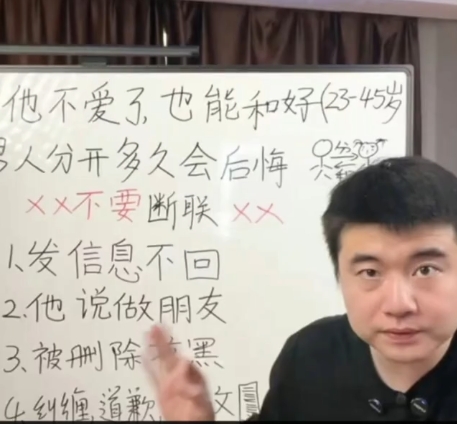 他不爱了,也能和好(23-45岁
男人分开多久会后悔
××不要断联××
1.发信息不回
2.他说做朋友
3.被删除 黑
4.纠缠,道歉, 文